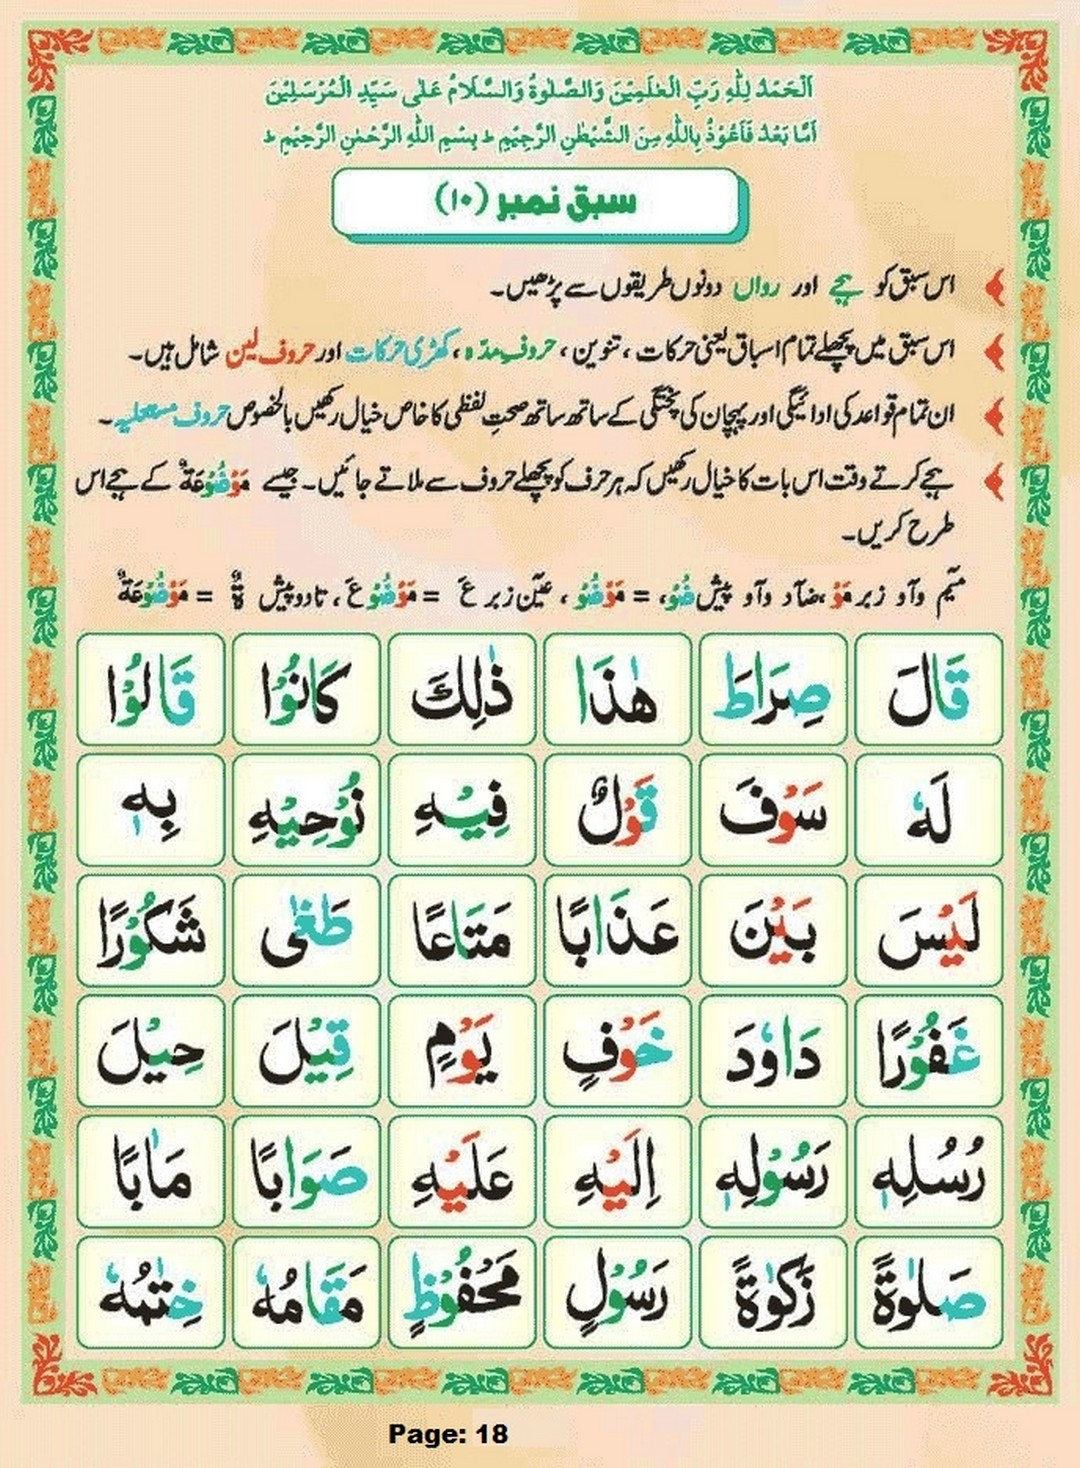 اَلْحَمْدُ لِلّٰهِ رَبِّ الْعٰلَمِيْنَ وَالصَّلٰوةُ وَالسَّلَامُ عَلٰى سَيِّدِ الْمُرْسَلِيْنَ
اَمَّا بَعْدُ فَاَعُوْذُ بِاللّٰهِ مِنَ الشَّيْطٰنِ الرَّجِيْمِ ط بِسْمِ اللّٰهِ الرَّحْمٰنِ الرَّحِيْمِ ط
سبق نمبر (۱۰)
اس سبق کو ہجے اور رواں دونوں طریقوں سے پڑھیں۔
اس سبق میں پچھلے تمام اسباق یعنی حرکات ، تنوین ، حروفِ مدّہ ، کھڑی حرکات اور حروف لین شامل ہیں۔
ان تمام قواعد کی ادائیگی اور پہچان کی پختگی کے ساتھ ساتھ صحتِ لفظی کا خاص خیال رکھیں بالخصوص حروف مستعلیہ۔
ہجے کرتے وقت اس بات کا خیال رکھیں کہ ہر حرف کو پچھلے حروف سے ملاتے جائیں۔ جیسے مَوْضُوْعَةٌ کے ہجے اس
طرح کریں۔
میم وآو زبر مَوْ ، ضآد وآو پیش ضُوْ ، = مَوْضُوْ ، عین زبر عَ = مَوْضُوْعَ ، تا دو پیش ةٌ = مَوْضُوْعَةٌ
قَالَ صِرَاطَ هٰذَا ذٰلِكَ كَانُوْا قَالُوْا
لَهٗ سَوْفَ قَوْلٌ فِيْهِ نُوْحِيْهِ بِهٖ
لَيْسَ بَيْنَ عَذَابًا مَتَاعًا طَغٰى شَكُوْرًا
غَفُوْرًا دَاوٗدَ خَوْفٍ يَوْمِ قِيْلَ حِيْلَ
رُسُلِهٖ رَسُوْلِهٖ اِلَيْهِ عَلَيْهِ صَوَابًا مَاٰبًا
صَلٰوةً زَكٰوةً رَسُوْلٍ مَحْفُوْظٍ مَقَامُهٗ خِتٰمُهٗ
Page: 18